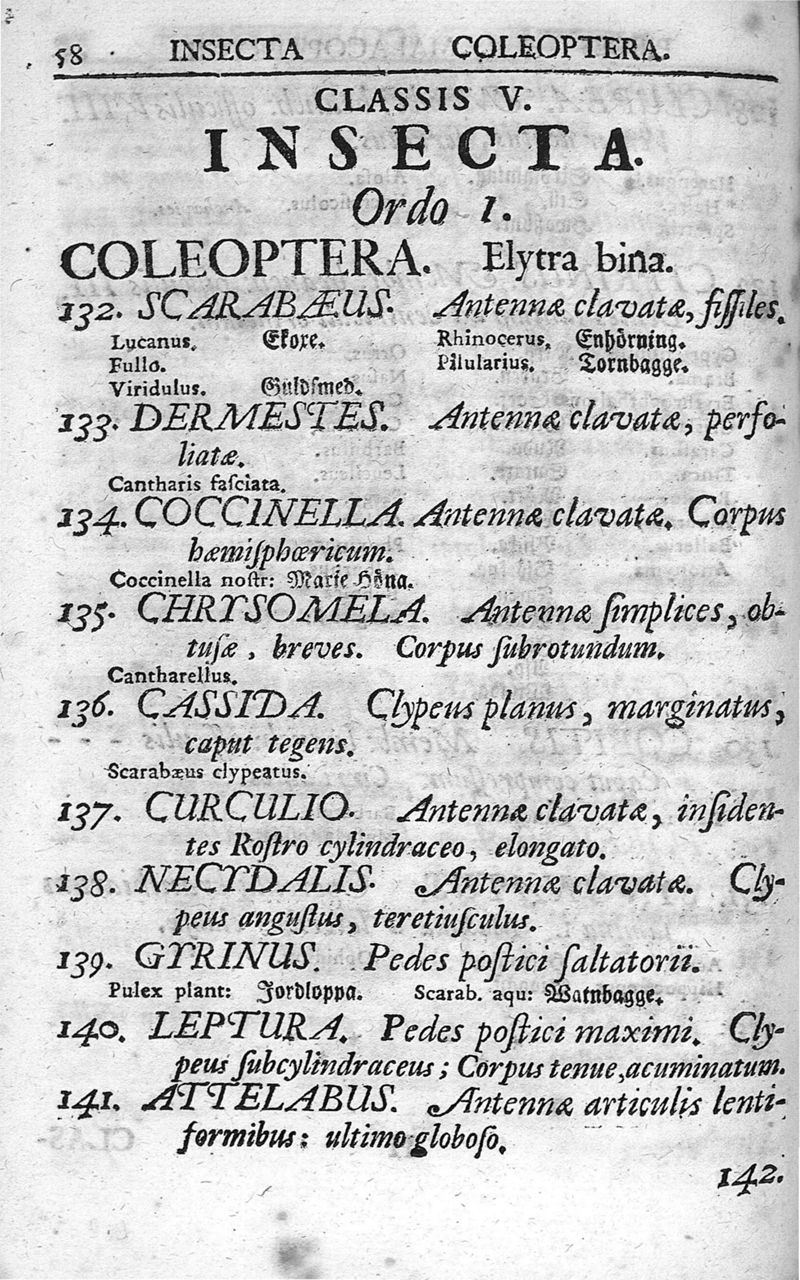 58 INSECTA COLEOPTERA.
CLASSIS V.
INSECTA.
Ordo 1.
COLEOPTERA. Elytra bina.
132. SCARABÆUS. Antennæ clavatæ, fiſſiles.
Lucanus. Ekoxe. Rhinocerus. Enhörning.
Fullo. Pilularius. Tornbagge.
Viridulus. Guldsmed.
133. DERMESTES. Antennæ clavatæ, perfo-
liatæ.
Cantharis faſciata.
134. COCCINELLA. Antennæ clavatæ. Corpus
hæmiſphœricum.
Coccinella noſtr: Marie Höna.
135. CHRYSOMELA. Antennæ ſimplices, ob-
tuſæ, breves. Corpus ſubrotundum.
Cantharellus.
136. CASSIDA. Clypeus planus, marginatus,
caput tegens.
Scarabæus clypeatus.
137. CURCULIO. Antennæ clavatæ, inſiden-
tes Roſtro cylindraceo, elongato.
138. NECYDALIS. Antennæ clavatæ. Cly-
peus anguſtus, teretiuſculus.
139. GYRINUS. Pedes poſtici ſaltatorii.
Pulex plant: Jordloppa. Scarab. aqu: Watnbagge.
140. LEPTURA. Pedes poſtici maximi. Cly-
peus ſubcylindraceus; Corpus tenue, acuminatum.
141. ATTELABUS. Antennæ articulis lenti-
formibus: ultimo globoſo.
142.